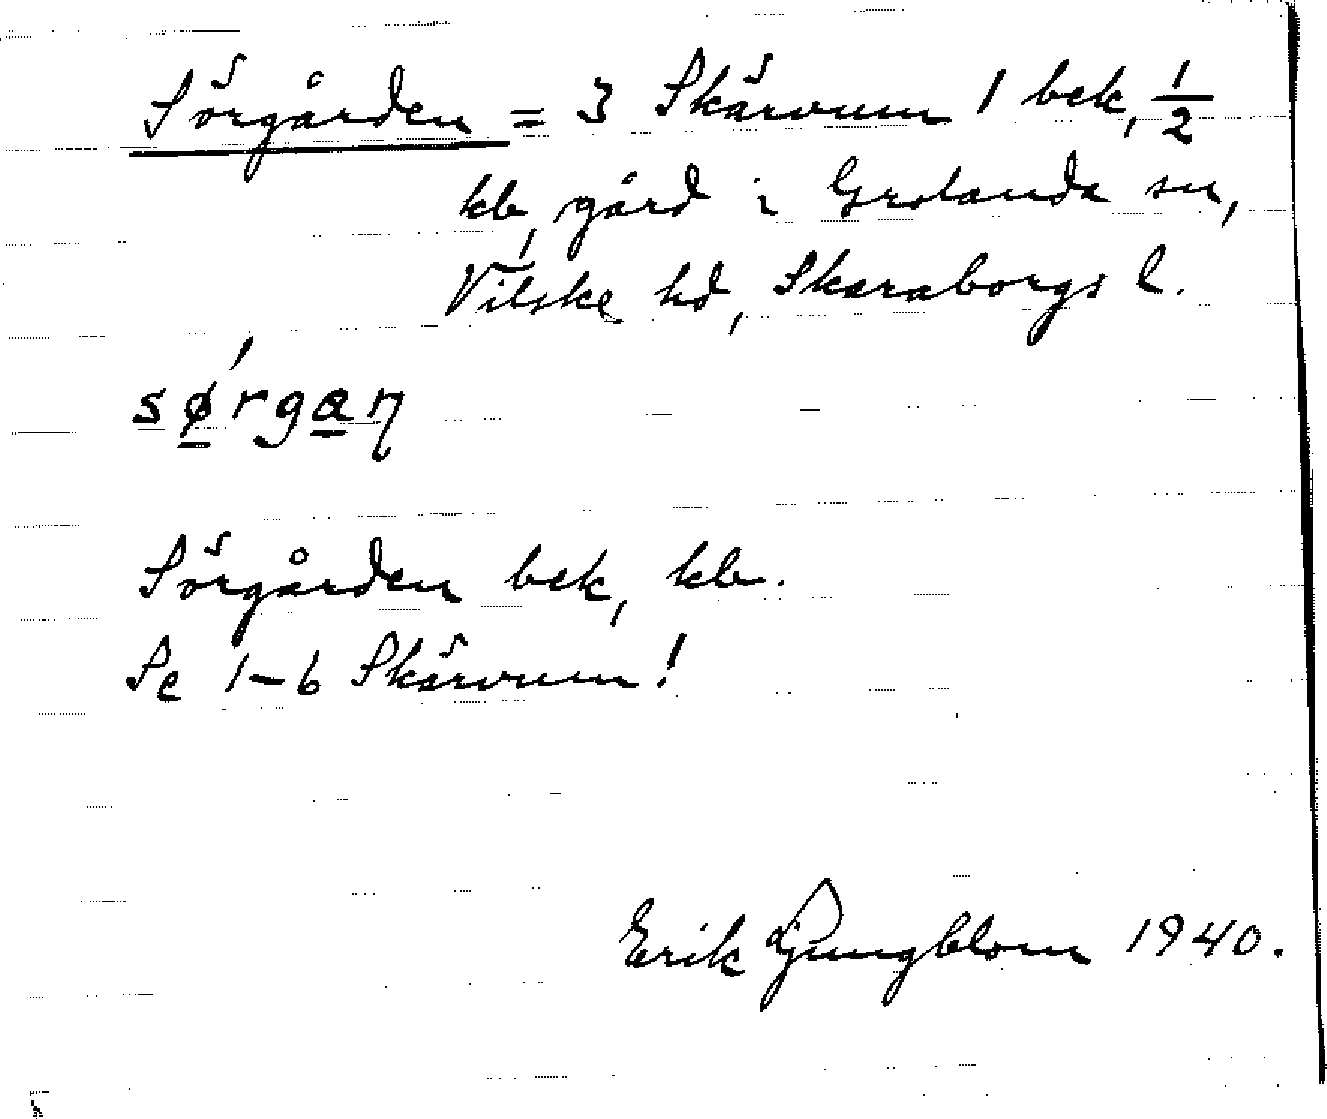 Sörgården = 3 Skärvum 1 bek, 1/2
kb, gård i Grolanda sn,
Vilske hd, Skaraborgs l.
sø̱´rga̱ɳ
Sörgården bek, kb.
Se 1-6 Skärvum!
Erik Ljungblom 1940.